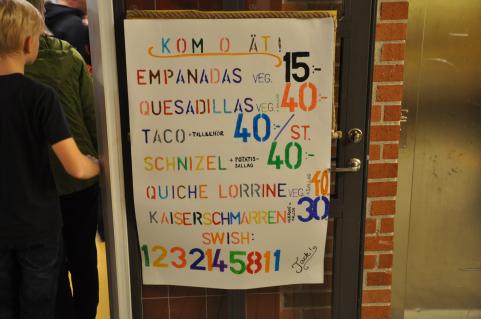 KOM O ÄT!
EMPANADAS VEG. 15:-
QUESADILLAS VEG. 40:-
TACO + TILLBEHÖR 40:-/ST.
SCHNIZEL + POTATIS-SALLAD 40:-
QUICHE LORRINE VEG.
KAISERSCHMARREN 30
SWISH:
1232145811
Tack!